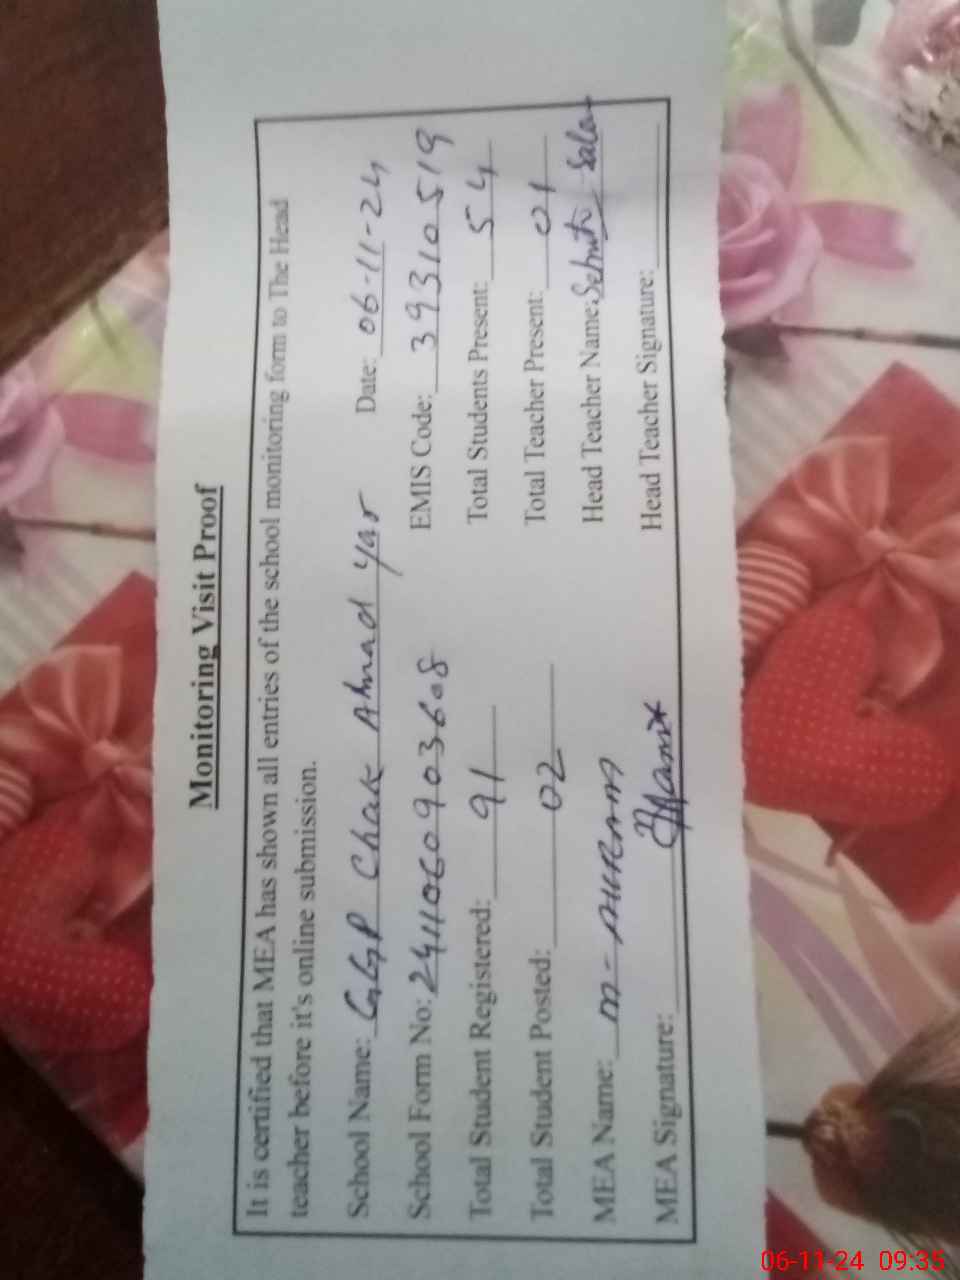 Monitoring Visit Proof
It is certified that MEA has shown all entries of the school monitoring form to The Head
teacher before it's online submission.
School Name: GGP Chak Ahmad Yar Date: 06-11-24
School Form No: 2411060903608 EMIS Code: 39310519
Total Student Registered: 91 Total Students Present: 54
Total Student Posted: 02 Total Teacher Present: 01
MEA Name: M-AKRAM Head Teacher Name:
MEA Signature: Head Teacher Signature:
06-11-24 09:35